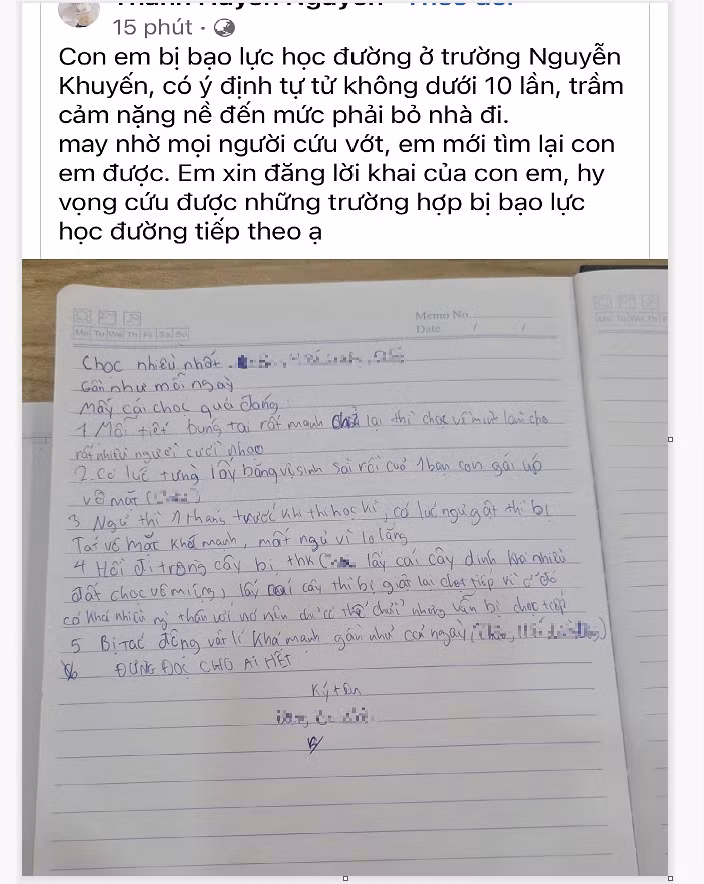 15 phút ·
Con em bị bạo lực học đường ở trường Nguyễn
Khuyến, có ý định tự tử không dưới 10 lần, trầm
cảm nặng nề đến mức phải bỏ nhà đi.
may nhờ mọi người cứu vớt, em mới tìm lại con
em được. Em xin đăng lời khai của con em, hy
vọng cứu được những trường hợp bị bạo lực
học đường tiếp theo ạ
Memo No.
Mo Tu We Th Fr Sa Su
Date / /
Chọc nhiều nhất
Gần như mỗi ngày
Mấy cái chọc quá đáng
1 Mỗi tiết búng tai rất mạnh lại thì chọc làm cho
rất nhiều người cười nhạo
2. Có lúc từng lấy băng vệ sinh sài rồi cuả 1 bạn con gái úp
vô mặt (
3 Ngủ thì 1 tháng trước khi thi học kì, có lúc ngủ gật thì bị
Tát vô mặt khá mạnh, mất ngủ vì lo lắng
4 Hồi đi trồng cây bị thk ( lấy cái cây dính khá nhiều
đất chọc vô miệng, lấy cái cây thì bị giật lại chọt tiếp vì ở đó
có khá nhiều ng thân với nó nên chỉ có thể chửi nhưng vẫn bị chọc tiếp
5 Bị Tác động vật lí khá mạnh gần như cả ngày ( )
ĐỪNG ĐỌC CHO AI HẾT
Ký tên